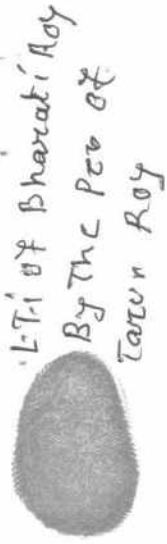 L.T.i of Bharati Roy
By The Pen of
Tarun Roy